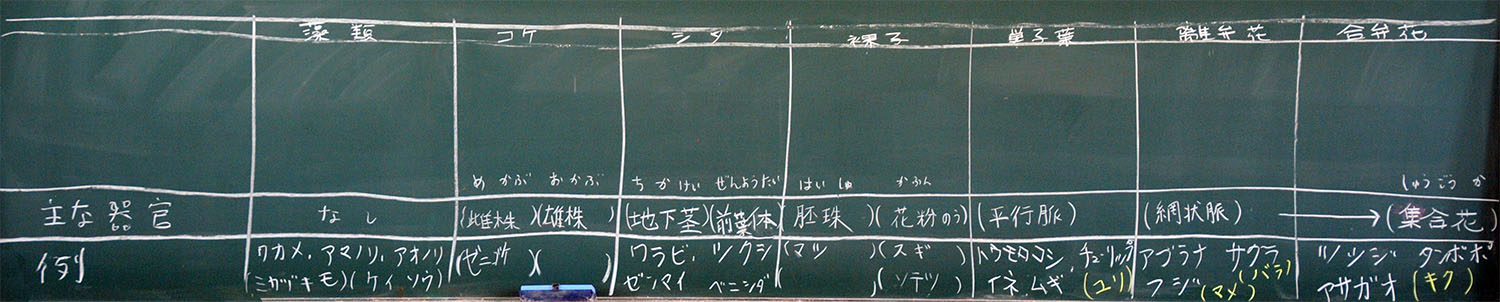 藻類 コケ シダ 裸子 単子葉 離弁花 合弁花
めかぶ おかぶ ちかけい ぜんようたい はいしゅ かふん しゅうごうか
主な器官 なし (雌株)(雄株) (地下茎)(前葉体) (胚珠)(花粉のう) (平行脈) (網状脈) → (集合花)
例 ワカメ、アマノリ、アオノリ (ゼニゴケ)( ) ワラビ、ツクシ (マツ )(スギ トウモロコシ、チューリップ アブラナ サクラ ツツジ タンポポ
(ミカヅキモ)(ケイソウ) ゼンマイ ベニシダ ( )(ソテツ ) イネ、ムギ (ユリ) フジ(マメ)(バラ) アサガオ (キク)